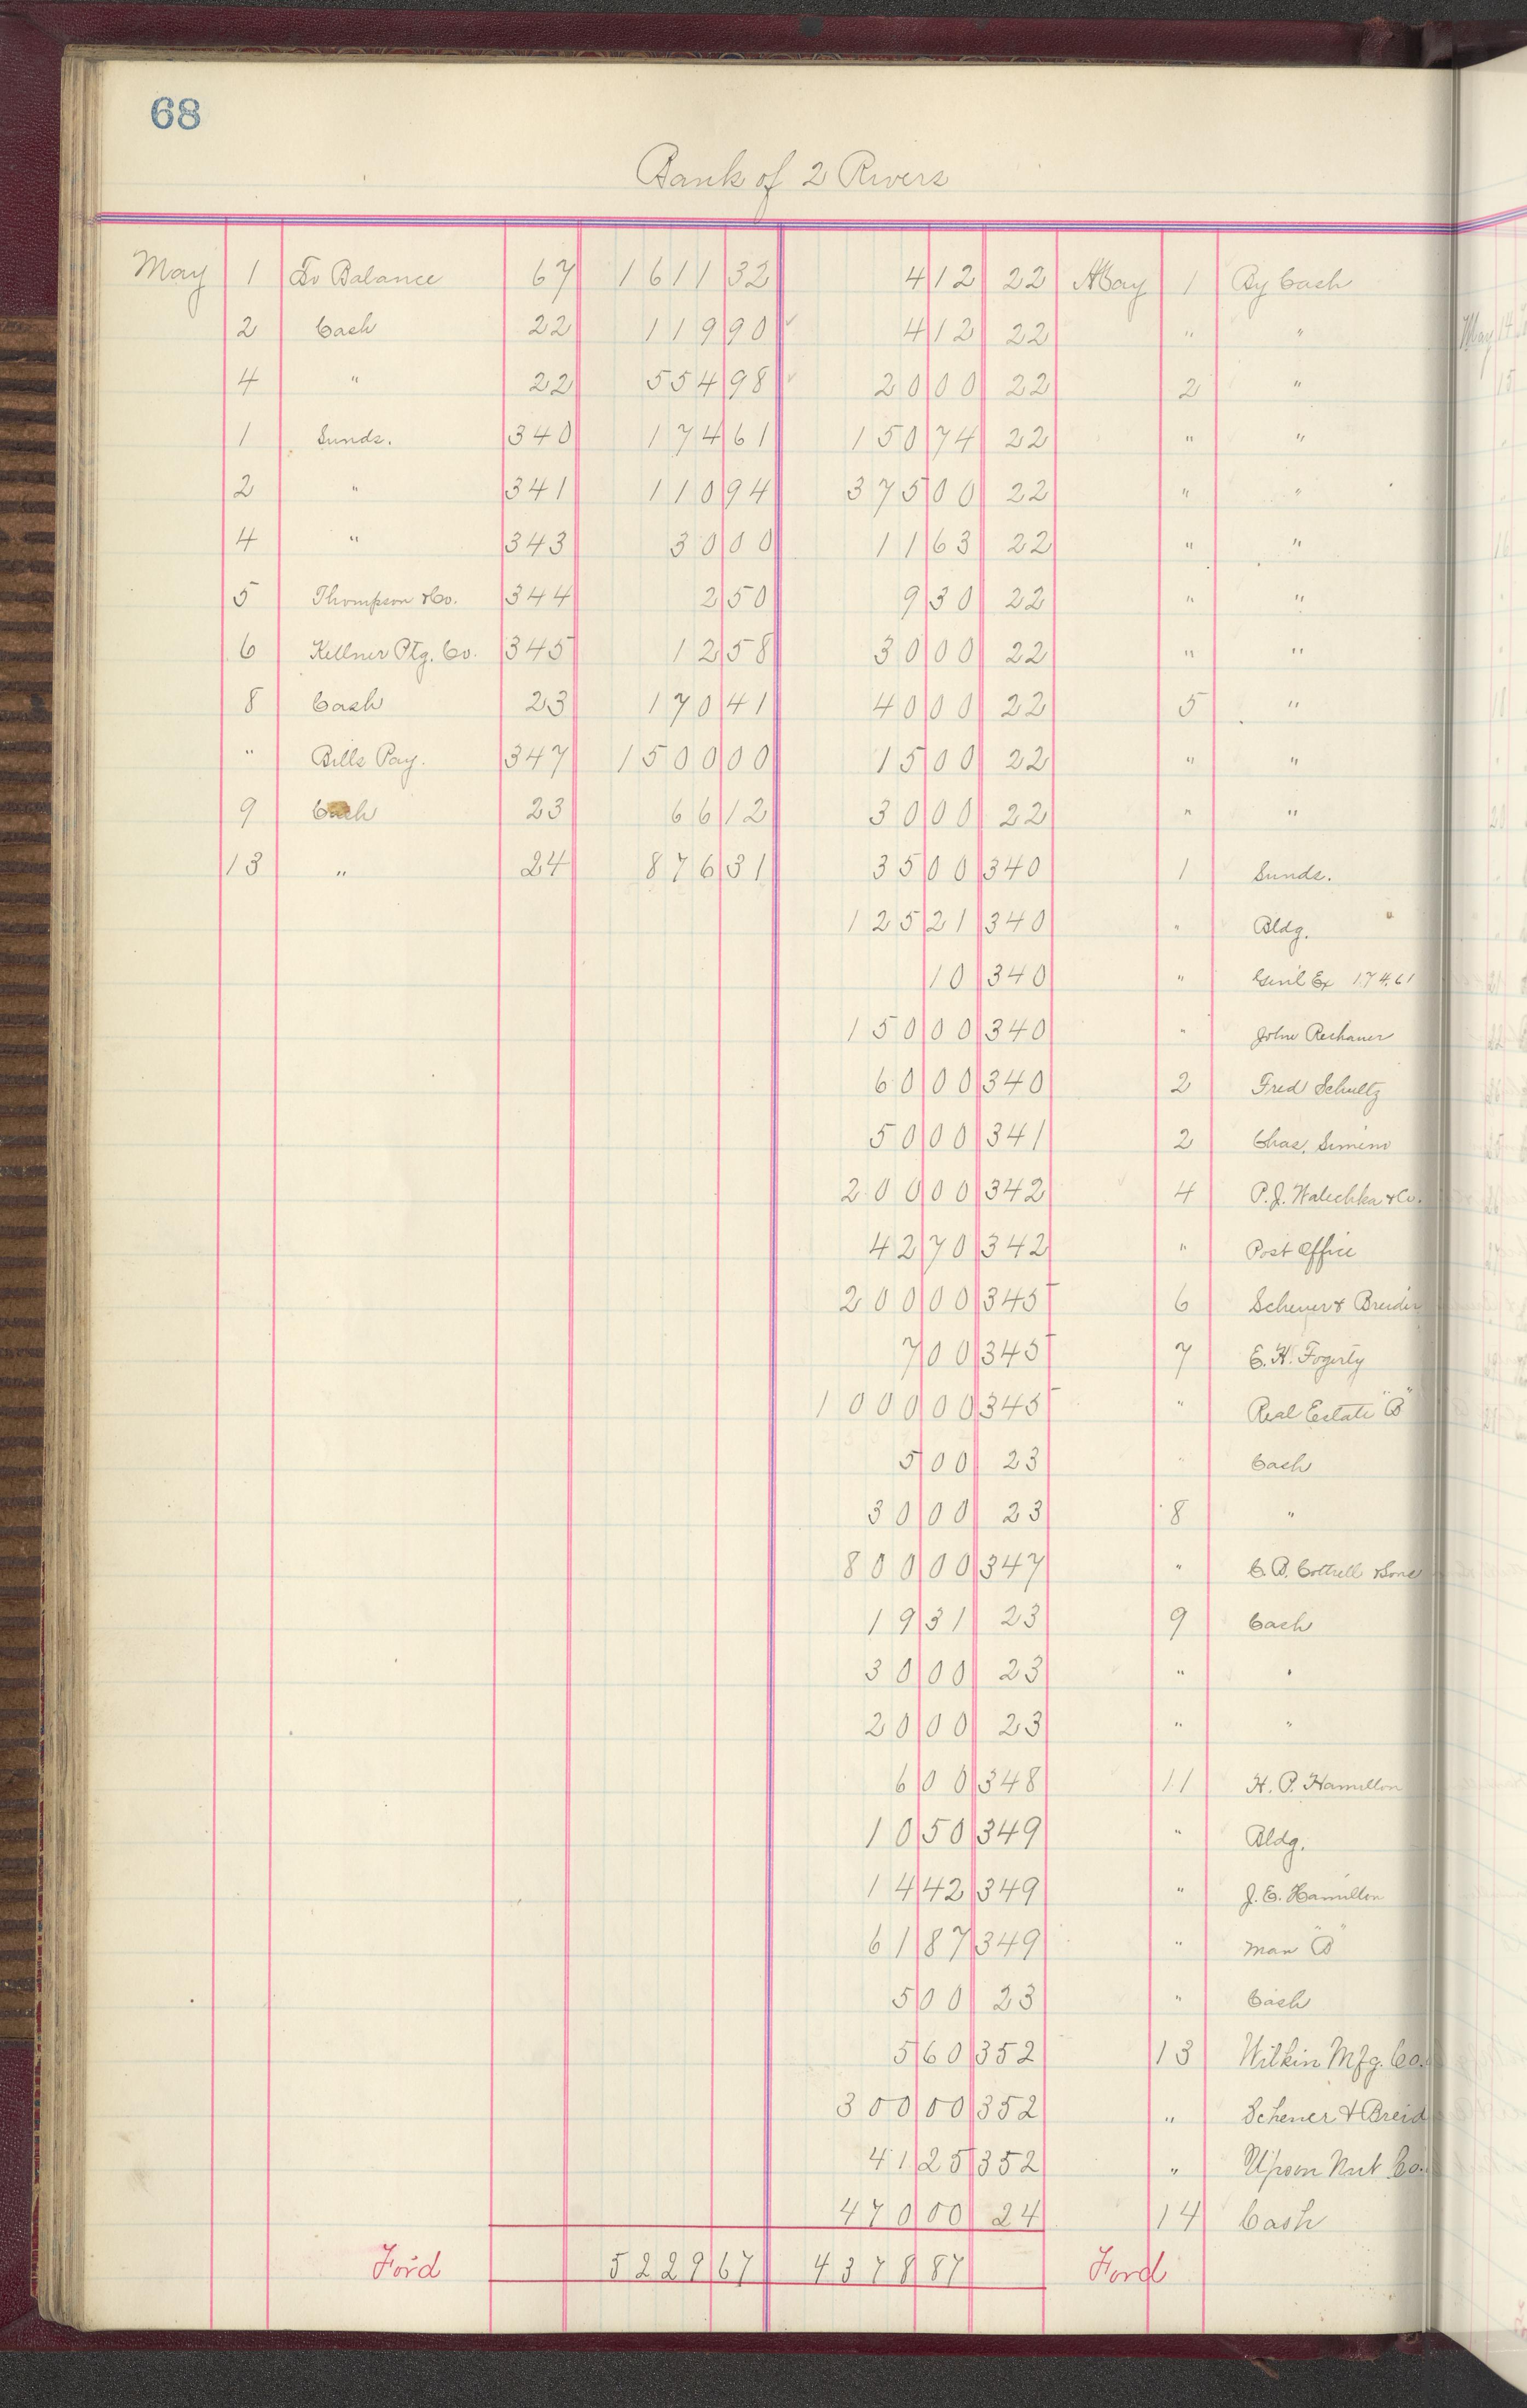 68
Bank of 2 Rivers
May 1 To Balance 67 1611 32 4 12 22 May 1 By Cash
2 Cash 22 119 90 4 12 22 " "
4 " 22 554 98 20 00 22 2 "
1 Sunds. 340 174 61 150 74 22 " "
2 " 341 110 94 375 00 22 " "
4 " 343 30 00 11 63 22 " "
5 Thompson & Co. 344 2 50 9 30 22 " "
6 Kellner Ptg. Co. 345 12 58 30 00 22 " "
8 Cash 23 170 41 40 00 22 5 "
" Bills Pay. 347 1500 00 15 00 22 " "
9 Cash 23 66 12 30 00 22 " "
13 " 24 876 31 35 00 340 1 Sunds.
125 21 340 " Bldg.
10 340 " Genl Ex 174.61
150 00 340 " John Rechauer
60 00 340 2 Fred Schultz
50 00 341 2 Chas.
200 00 342 4 P.J. Walechka & Co.
42 70 342 " Post Office
200 00 345 6 Scheuer &
7 00 345 7 E. H. Fogerty
1000 00 345 " Real Estate "B"
5 00 23 " Cash
30 00 23 8 "
800 00 347 " C. B. Cottrell & Sons
19 31 23 9 Cash
30 00 23 " "
20 00 23 " "
6 00 348 11 H. P. Hamilton
10 50 349 " Bldg.
14 42 349 " J. E. Hamilton
61 87 349 " Man "B"
5 00 23 " Cash
5 60 352 13 Wilkin Mfg. Co.
300 00 352 " Scheuer & Breid
41 25 352 " Upson Nut Co.
470 00 24 14 Cash
Ford 5229 67 4378 87 Ford